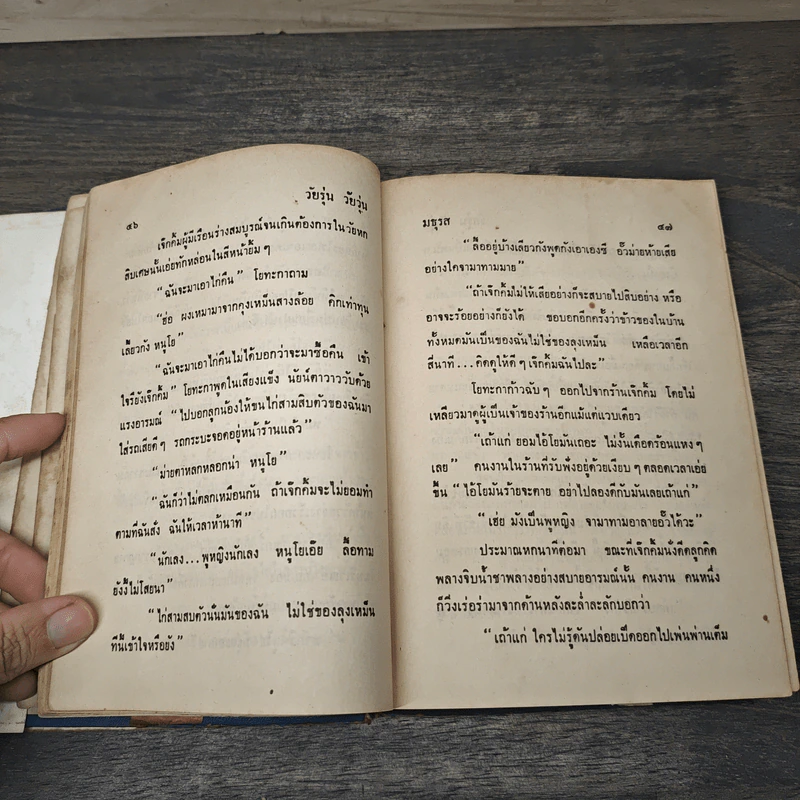 วัยรุ่น วัยวุ่น
๔๖
เจ๊กคิ้มผู้มีเรือนร่างสมบูรณ์จนเกินต้องการในวัยหก
สิบเศษนั้นเอ่ยทักหล่อนในสีหน้ายิ้ม ๆ
“ฉันจะมาเอาไก่คืน” โยทะกาถาม
“ฮ่อ ผงเหมามาจากคุงเหม็นสางล้อย คิกเท่าทุน
เลี้ยวกัง หนูโย”
“ฉันจะมาเอาไก่คืนไม่ได้บอกว่าจะมาซื้อคืน เข้า
ใจรึยังเจ๊กคิ้ม” โยทะกาพูดในเสียงแข็ง นัยน์ตาวาววับด้วย
แรงอารมณ์ “ไปบอกลูกน้องให้ขนไก่สามสิบตัวของฉันมา
ใส่รถเสียดี ๆ รถกระบะจอดอยู่หน้าร้านแล้ว”
“ม่ายตาหลกหลอกน่า หนูโย”
“ฉันก็ว่าไม่ตลกเหมือนกัน ถ้าเจ๊กคิ้มจะไม่ยอมทำ
ตามที่ฉันสั่ง ฉันให้เวลาห้านาที”
“นักเลง...พูหญิงนักเลง หนูโยเอ๊ย ลื้อทาม
ยังงี้ไม่โสยนา”
“ไก่สามสบตัวนั่นมันของฉัน ไม่ใช่ของลุงเหม็น
ทีนี้เข้าใจหรือยัง”
มธุรส
๔๗
“ลื้ออยู่บ้างเลียวกังพูดกังเอาเองซี อั๊วม่ายห้ายเสีย
อย่างใดจามาทามมาย”
“ถ้าเจ๊กคิ้มไม่ให้เสียอย่างก็จะสบายไปสิบอย่าง หรือ
อาจจะร้อยอย่างก็ยังได้ ขอบอกอีกครั้งว่าข้าวของในบ้าน
ทั้งหมดมันเป็นของฉันไม่ใช่ของลุงเหม็น เหลือเวลาอีก
สี่นาที...คิดดูให้ดี ๆ เจ๊กคิ้มฉันไปละ”
โยทะกาก้าวฉับ ๆ ออกไปจากร้านเจ๊กคิ้ม โดยไม่
เหลียวมาดูผู้เป็นเจ้าของร้านอีกแม้แต่แวบเดียว
“เถ้าแก่ ยอมไอ้โยมันเถอะ ไม่งั้นเดือดร้อนแหง ๆ
เลย” คนงานในร้านที่รับฟังอยู่ด้วยเงียบ ๆ ตลอดเวลาเอ่ย
ขึ้น “ไอ้โยมันร้ายจะตาย อย่าไปลองดีกับมันเลยเถ้าแก่”
“เฮ่ย มังเป็นพูหญิง จามาทามอาลายอั๊วได้วะ”
ประมาณหกนาทีต่อมา ขณะที่เจ๊กคิ้มนั่งดีดลูกคิด
พลางจิบน้ำชาพลางอย่างสบายอารมณ์นั้น คนงาน คนหนึ่ง
ก็วิ่งเร่อร่ามาจากด้านหลังละล่ำละลักบอกว่า
“เถ้าแก่ ใครไม่รู้ดันปล่อยเป็ดออกไปเพ่นพ่านเต็ม